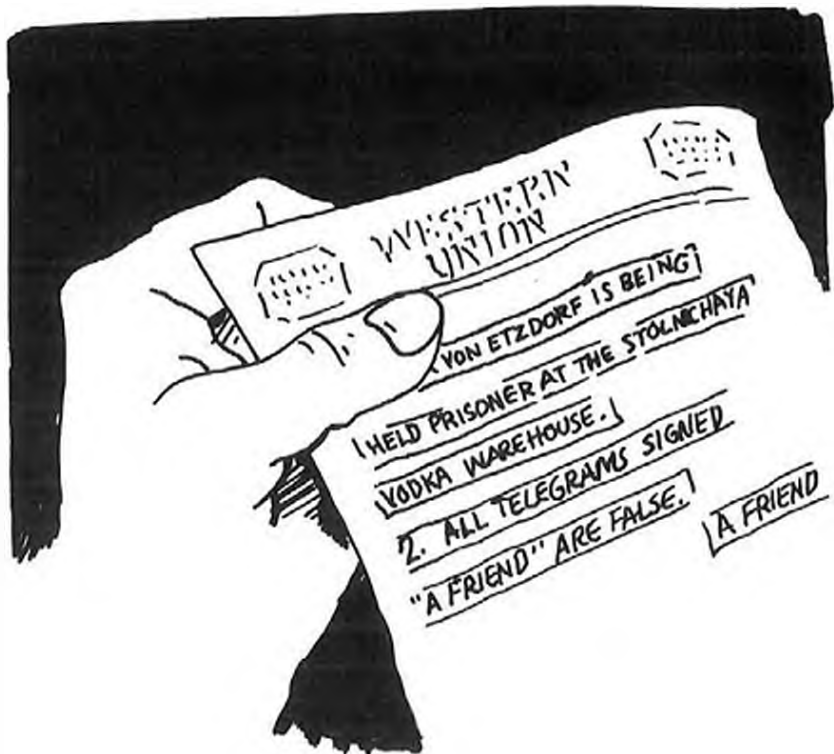 WESTERN
UNION
VON ETZDORF IS BEING
HELD PRISONER AT THE STOLNICHAYA
VODKA WAREHOUSE.
2. ALL TELEGRAMS SIGNED
"A FRIEND" ARE FALSE.
A FRIEND